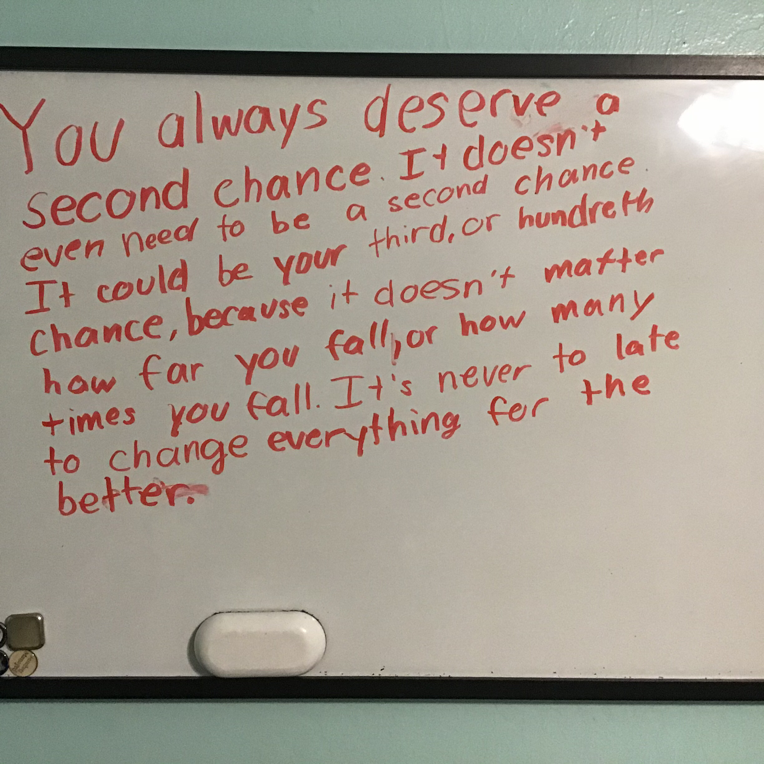 You always deserve a
second chance. It doesn't
even need to be a second chance.
It could be your third, or hundreth
chance, because it doesn't matter
how far you fall, or how many
times you fall. It's never to late
to change everything for the
better.